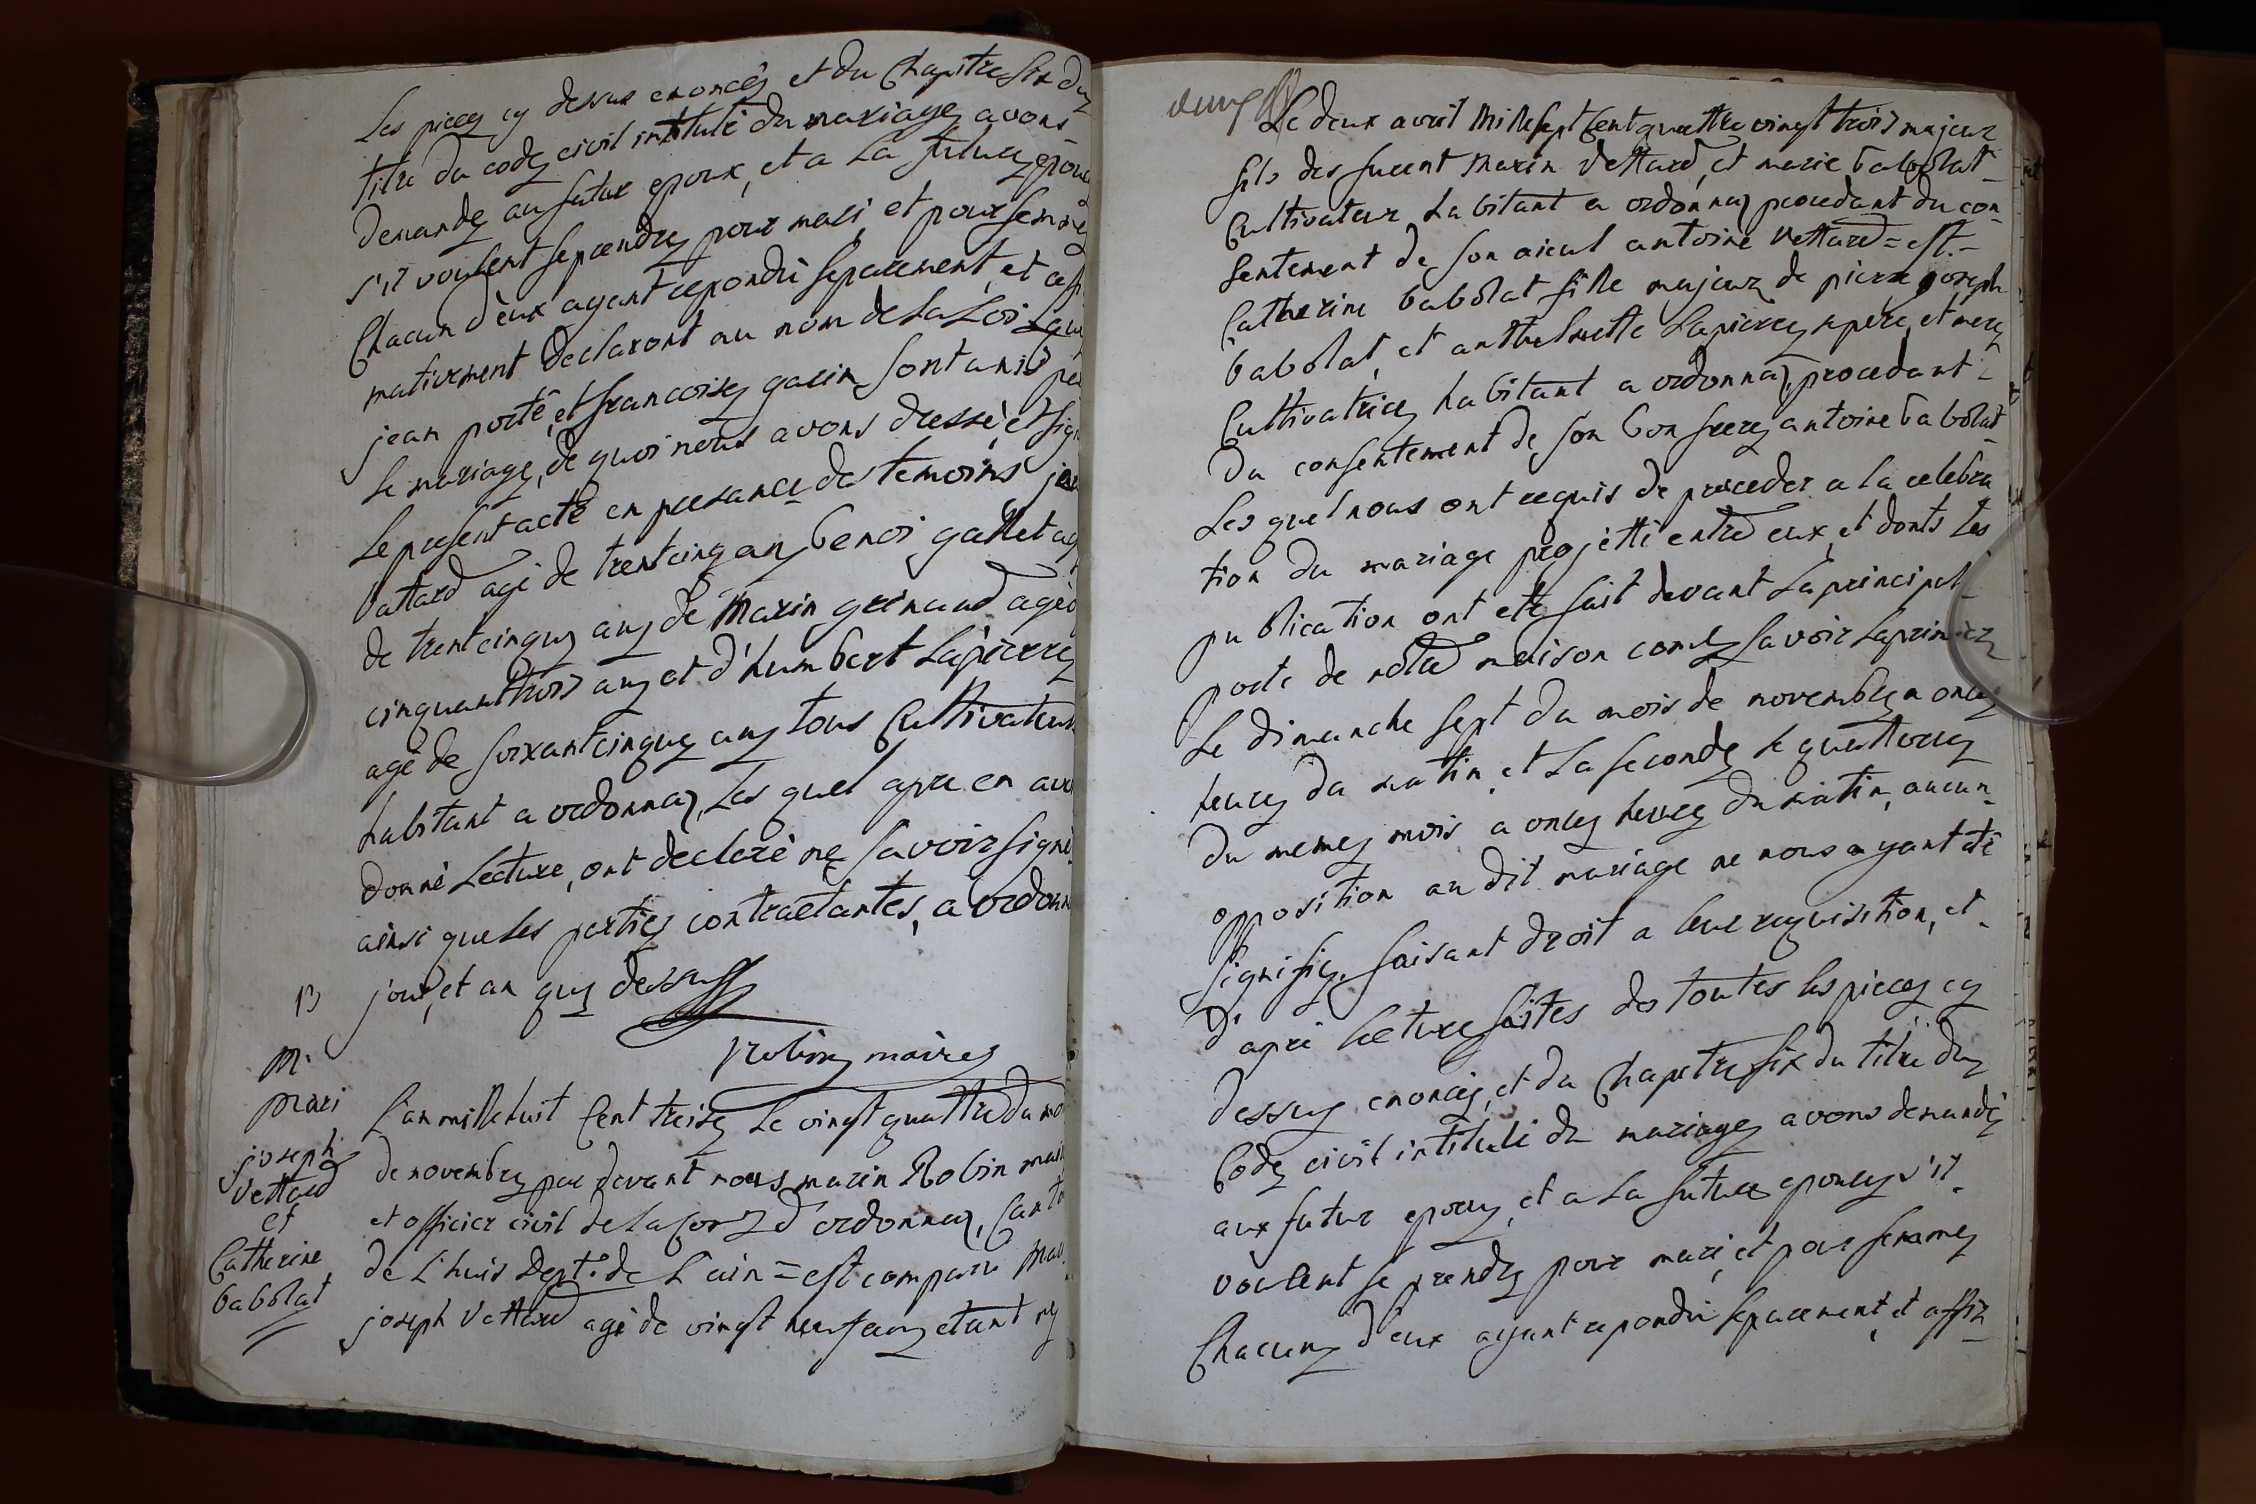 Les pieces cy dessus enoncés et du Chapitre six du
titre du code civil intitulé du mariage avons
demandé au futur epoux, et a la future epouse
s'il voulent se prendre pour mari et pour femme
Chacun d'eux ayant repondu separement, et affir
mativement declaront au nom de la Loi que
jean porte, et francoise garin sont unis par
le mariage, de quoi nous avons dressé, et signé
le present acte en presance des temoins jean
vattard agé de trent cinq ans benoi gallet agé
de trent cinque ans de Marin grinand agé de
cinquant trois ans et d'humbert Lapierre
agé de soixant cinque ans tous Cultivateurs
habitant a ordonnaz, Les quel apre en avoir
donné Lecture, ont decleré ne savoir signé
ainsi que les parties contractantes, a ordonnaz
jour, et an que dessus
Robin maire
13
M.
Mari
joseph
Vettard
et
Catherine
babolat
L'an mille huit Cent treise le vingt quattre du mois
de novembre par devant nous marin Robin maire
et officier civil de la Com d'ordonnaz, Canton
de L'huis Dept. de L'ain = est comparu Mari
joseph Vettard agé de vingt neuf ans etant né
Le deux avril Mille sept Cent quattre vingt trois majeur
fils des furent Marin Vettard, et marie babolat
Cultivateur habitant a ordonnaz procedant du con-
sentement de son aieul antoine Vettard = est.-
Catherine babolat fille majeur de pierre joseph
babolat, et anthelmette Lapierre père, et mere
Cultivatrice habitant a ordonnaz, procedant
du consentement de son bon frere antoine babolat
Les quel nous ont requis de proceder a la celebra
tion du mariage projetté entre eux, et donts Les
publication ont eté fait devant La principal
porte de notre maison comle savoir La premier
Le dimanche sept du mois de novembre a onze
heures du matin, et La seconde le quattorze
du meme mois a onze heures du matin, aucun
opposition au dit mariage ne nous ayant eté
signifie, faisant droit a leur requisition, et
d'apré lecture faites des toutes les pieces cy
dessus enoncés, et du Chapitre six du titre du
Code civil intitulé du mariage avons demandé
aux futur epoux, et a La future epouse s'il
voulent se prendre pour mari, et pour femme
Chacun d'eux ayant repondu separement, et affir